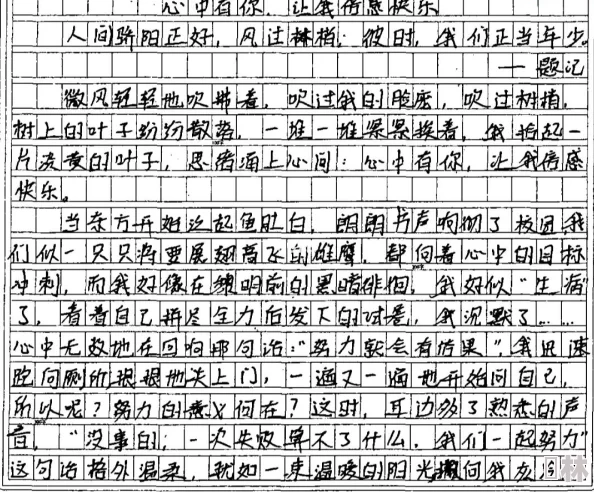 心中有你，让我倍感快乐
人间骄阳正好，风过林梢，彼时，我们正当年少。
——题记
微风轻轻地吹拂着，吹过我的脸庞，吹过树梢，
树上的叶子纷纷散落，一堆一堆紧紧挨着，我拾起一
片淡黄的叶子，思绪涌上心间：心中有你，让我倍感
快乐。
当东方开始泛起鱼肚白，朗朗书声响彻了校园，我
们似一只只将要展翅高飞的雄鹰，都向着心中的目标
冲刺，而我好像在黎明前的黑暗徘徊，我好似“生病”
了，看着自己拼尽全力后发下的试卷，我沉默了……
心中无数地在回响那句话：“努力就会有结果”，我迅速
跑向厕所狠狠地关上门，一遍又一遍地开始问自己，
所以呢？努力的意义何在？这时，耳边多了熟悉的声
音，“没事的，一次失败算不了什么，我们一起努力”
这句话格外温柔，犹如一束温暖的阳光撒向我